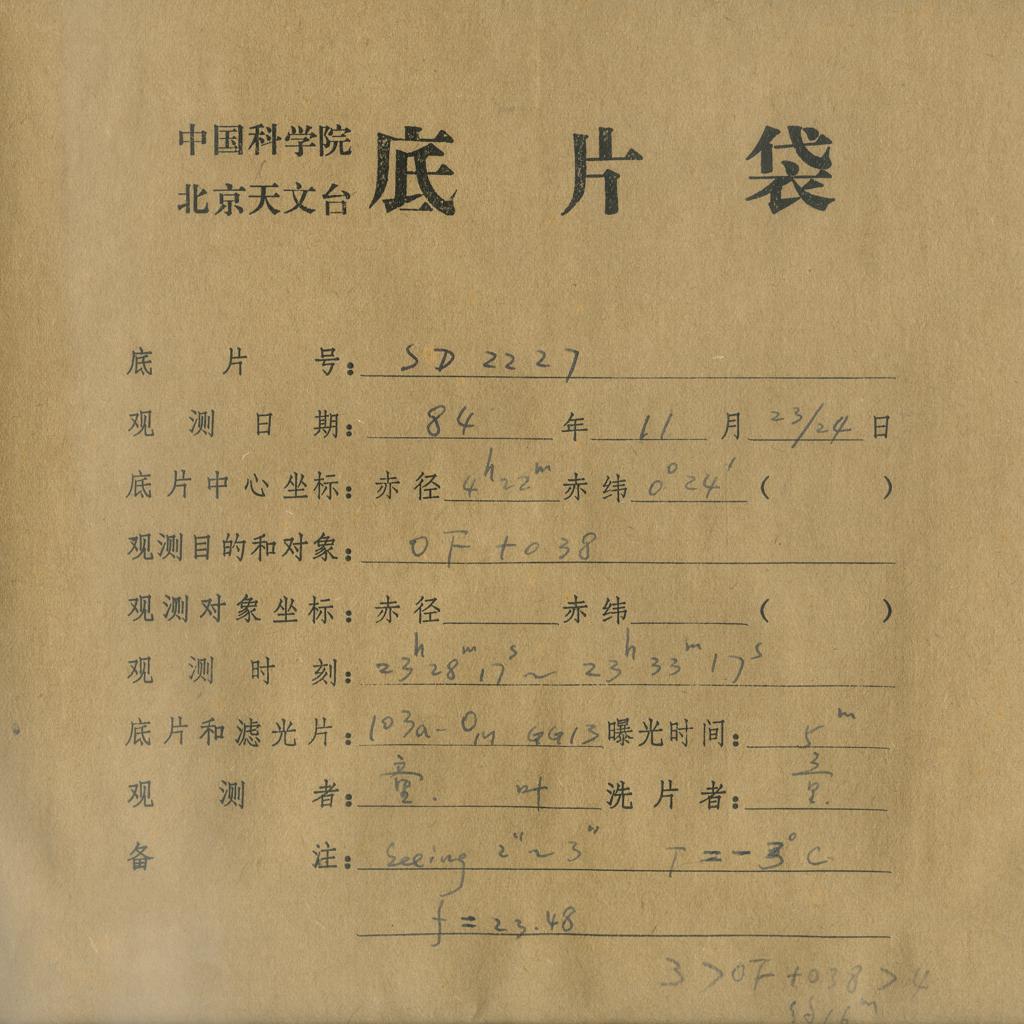 中国科学院
北京天文台
底片袋
底片号: SD 2227
观测日期: 84 年 11 月 23/24 日
底片中心坐标: 赤径 4h22m 赤纬 0°24′ ( )
观测目的和对象: OF +038
观测对象坐标: 赤径 赤纬 ( )
观测时刻: 23h28m17s ~ 23h33m17s
底片和滤光片: 103a-O, GG13 曝光时间: 5m
观测者: 童. 叶 洗片者:
备注: Seeing 2″~3″ T=-3°C
f=23.48
3>OF+038>4
16m